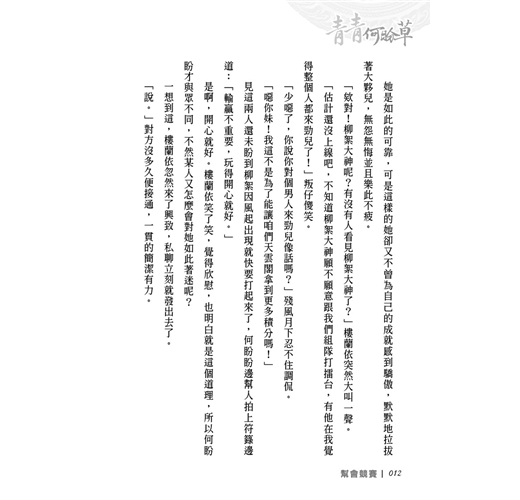 青青何盼草
她是如此的可靠，可是這樣的她卻又不曾為自己的成就感到驕傲，默默地拉拔
著大夥兒，無怨無悔並且樂此不疲。
「欸對！柳絮大神呢？有沒有人看見柳絮大神了？」樓蘭依突然大叫一聲。
「估計還沒上線吧，不知道柳絮大神願不願意跟我們組隊打擂台，有他在我覺
得整個人都來勁兒了！」叛仔傻笑。
「少噁了，你說你對個男人來勁兒像話嗎？」殘風月下忍不住調侃。
「噁你妹！我這不是為了能讓咱們天雲閣拿到更多積分嗎！」
見這兩人還未盼到柳絮因風起出現就快要打起來了，何盼盼邊幫人拍上符籙邊
道：「輸贏不重要，玩得開心就好。」
是啊，開心就好。樓蘭依笑了笑，覺得欣慰，也明白就是這個道理，所以何盼
盼才與眾不同，不然某人又怎麼會對她如此著迷呢？
一想到這，樓蘭依忽然來了興致，私聊立刻就發出去了。
「說。」對方沒多久便接通，一貫的簡潔有力。
幫會競賽 | 012